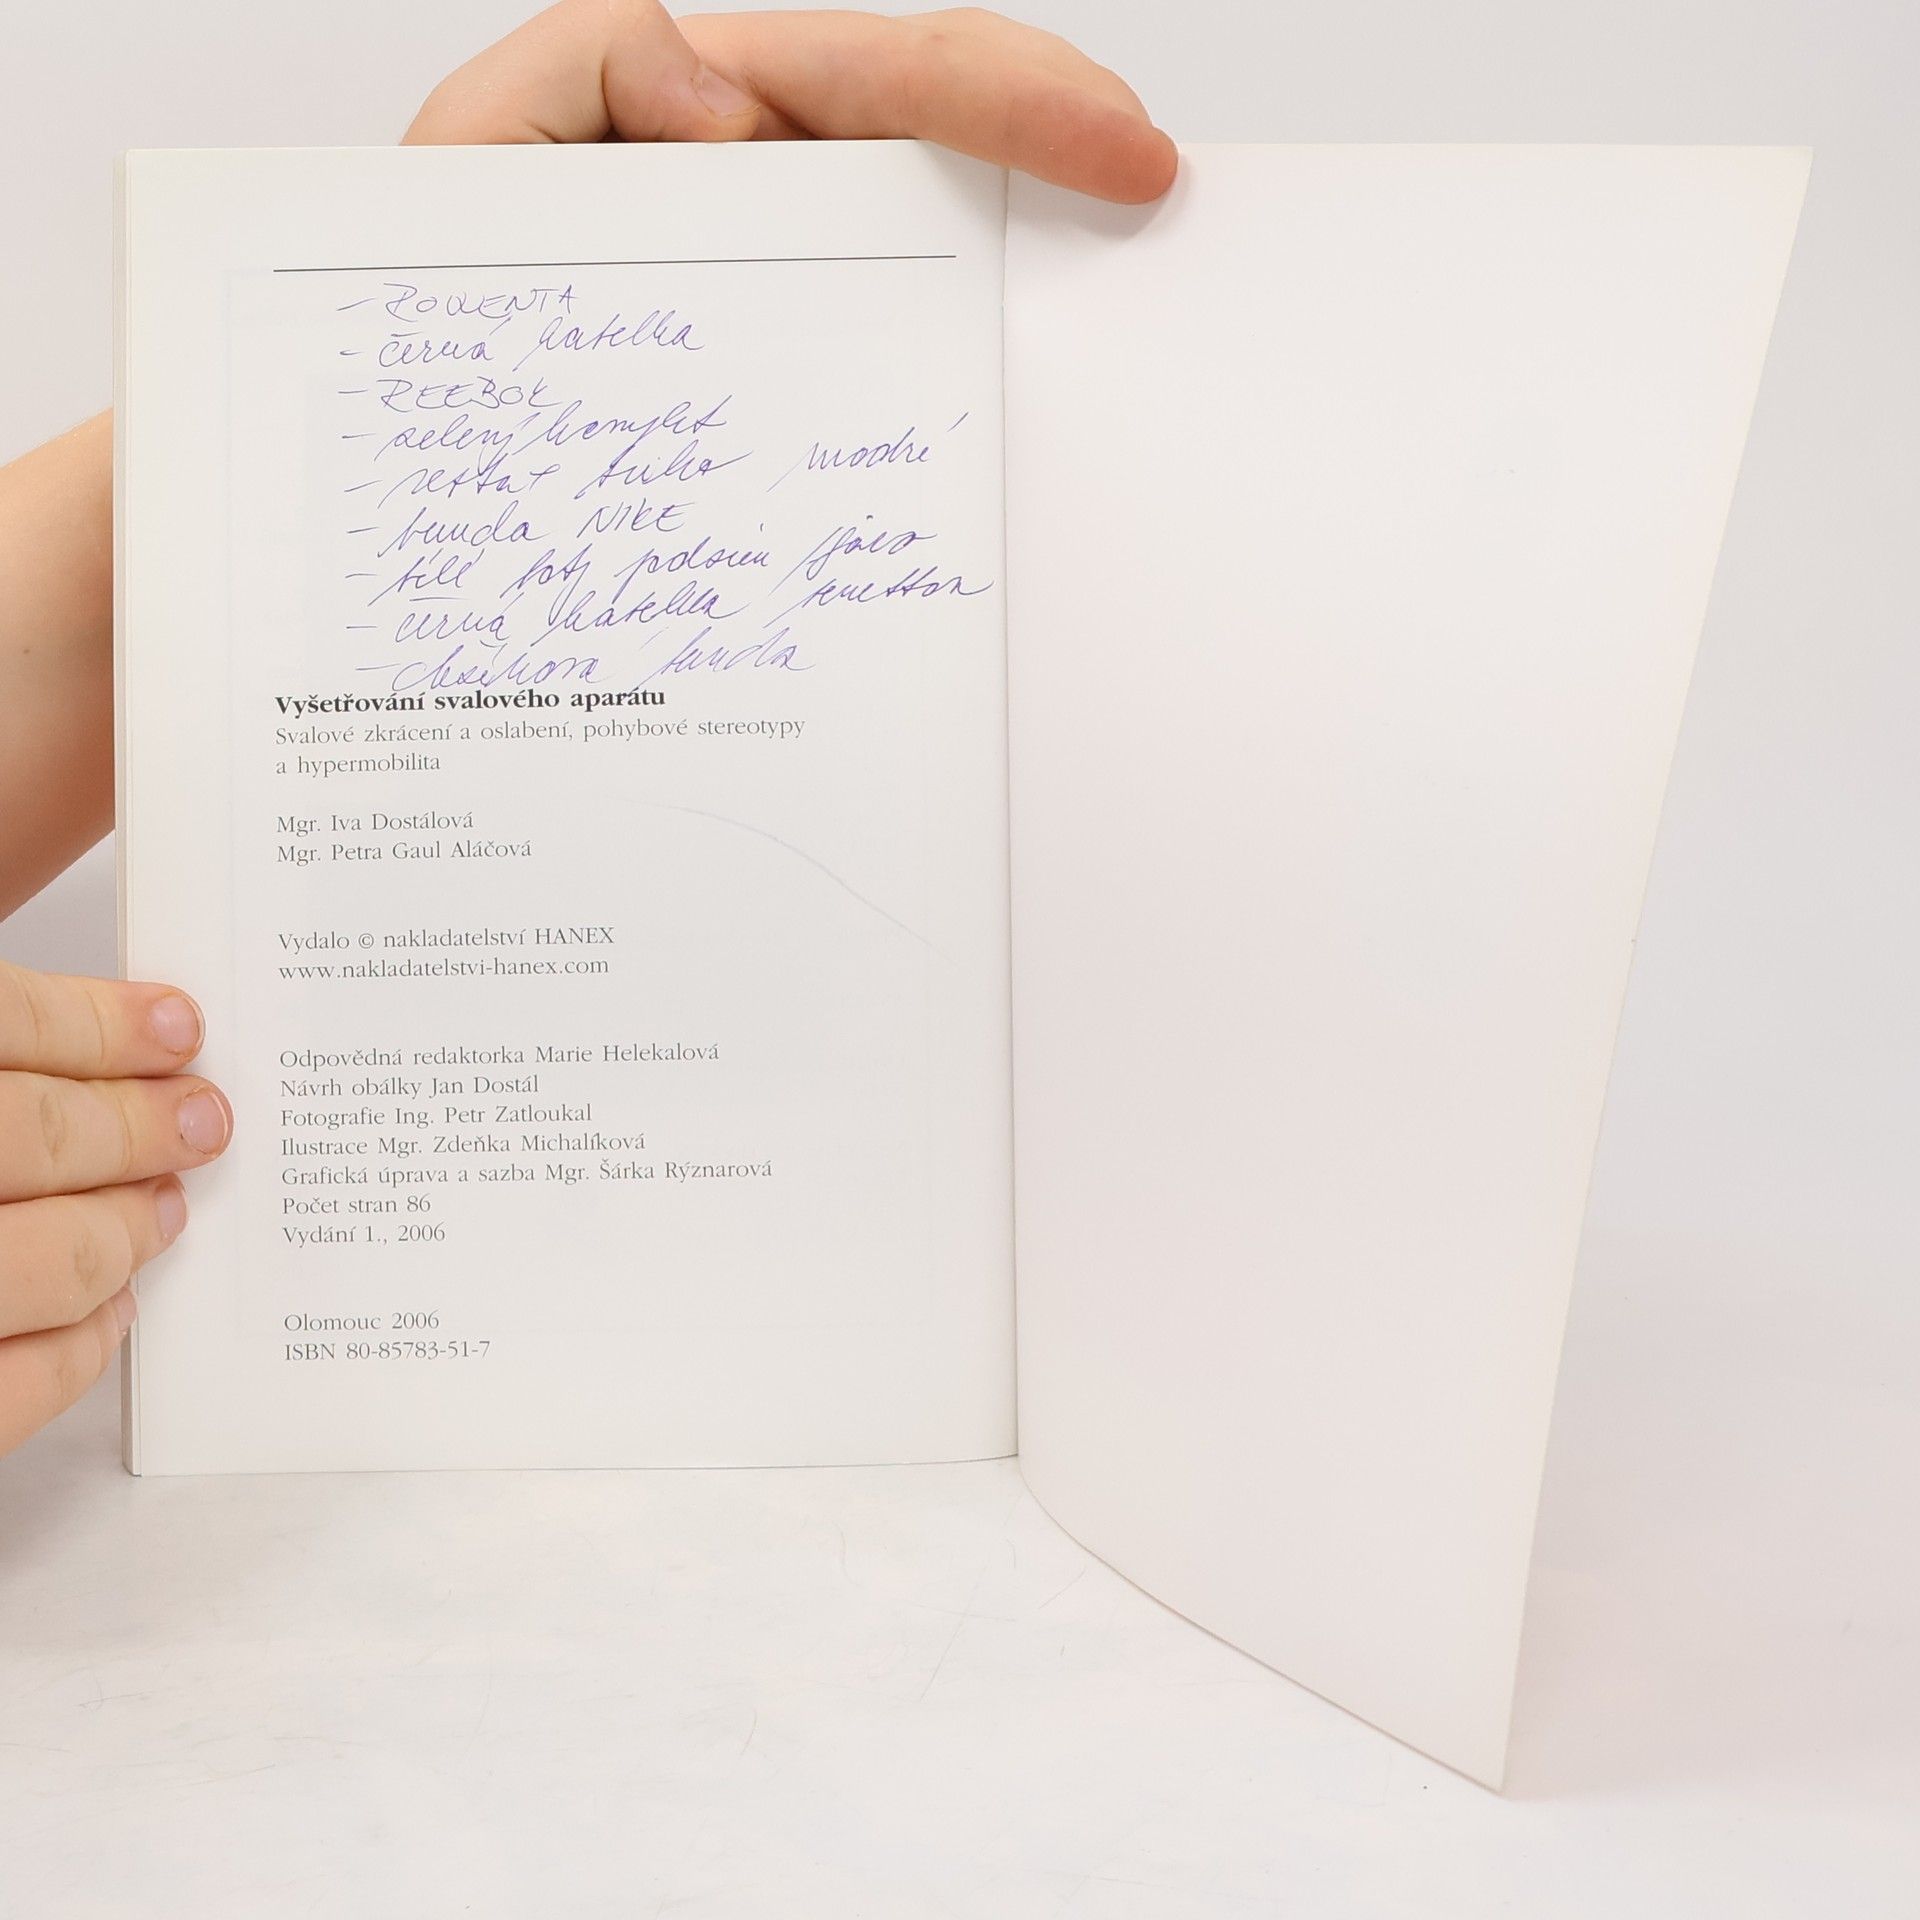 - ROWENTA
- černá kabelka
- REEBOK
- zelený komplet
- triko modré
- bunda NIKE
- bílé boty podzim jaro
- černá kabelka benetton
- bunda
Vyšetřování svalového aparátu
Svalové zkrácení a oslabení, pohybové stereotypy
a hypermobilita
Mgr. Iva Dostálová
Mgr. Petra Gaul Aláčová
Vydalo © nakladatelství HANEX
www.nakladatelstvi-hanex.com
Odpovědná redaktorka Marie Helekalová
Návrh obálky Jan Dostál
Fotografie Ing. Petr Zatloukal
Ilustrace Mgr. Zdeňka Michalíková
Grafická úprava a sazba Mgr. Šárka Rýznarová
Počet stran 86
Vydání 1., 2006
Olomouc 2006
ISBN 80-85783-51-7